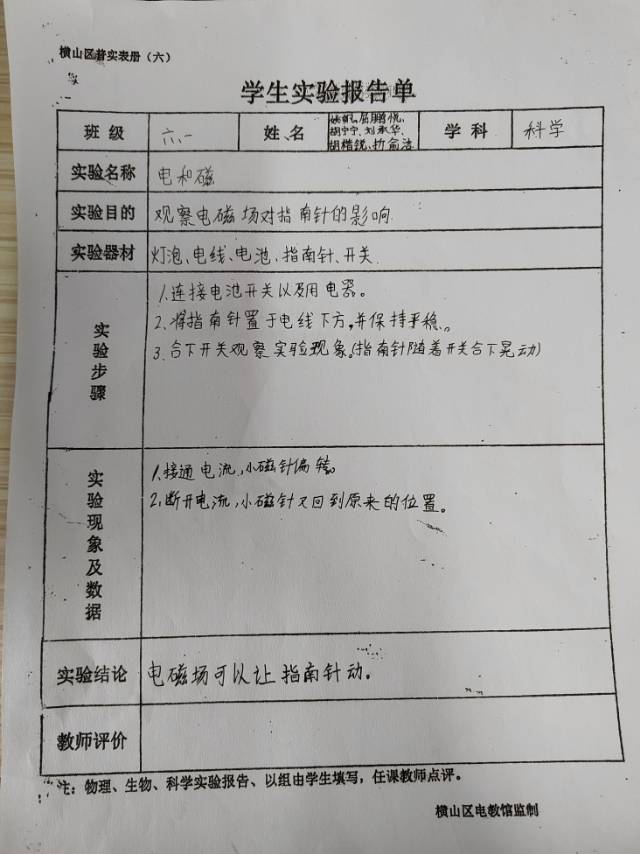 横山区普实表册（六）
学生实验报告单
班级 六.一 姓名 屈鹏帆、 学科 科学
胡宁宁、刘承华、
胡楷锐、
实验名称 电和磁
实验目的 观察电磁场对指南针的影响.
实验器材 灯泡、电线、电池、指南针、开关.
实验步骤
1.连接电池开关以及用电器。
2.将指南针置于电线下方,并保持平稳。
3.合下开关观察实验现象。(指南针随着开关合下晃动)
实验现象及数据
1.接通电流,小磁针偏转。
2.断开电流,小磁针又回到原来的位置。
实验结论 电磁场可以让指南针动。
教师评价
注：物理、生物、科学实验报告、以组由学生填写，任课教师点评。
横山区电教馆监制